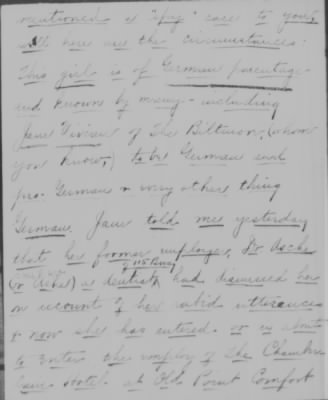 mentioned a "spy" case to you,
will here are the circumstances.
This girl is of German parentage
and known by many - including
Jane Vivian of The Biltmore, (whom
you know,) to be German and
pro-German & every other thing
German. Jane told me yesterday
that her former employer, Dr Asche
of 115 Bway
(or Ashe) a dentist, had dismissed her
on account of her rabid utterances
& now she has entered or is about
to enter the employ of the Chamber-
lain Hotel at Old Point Comfort